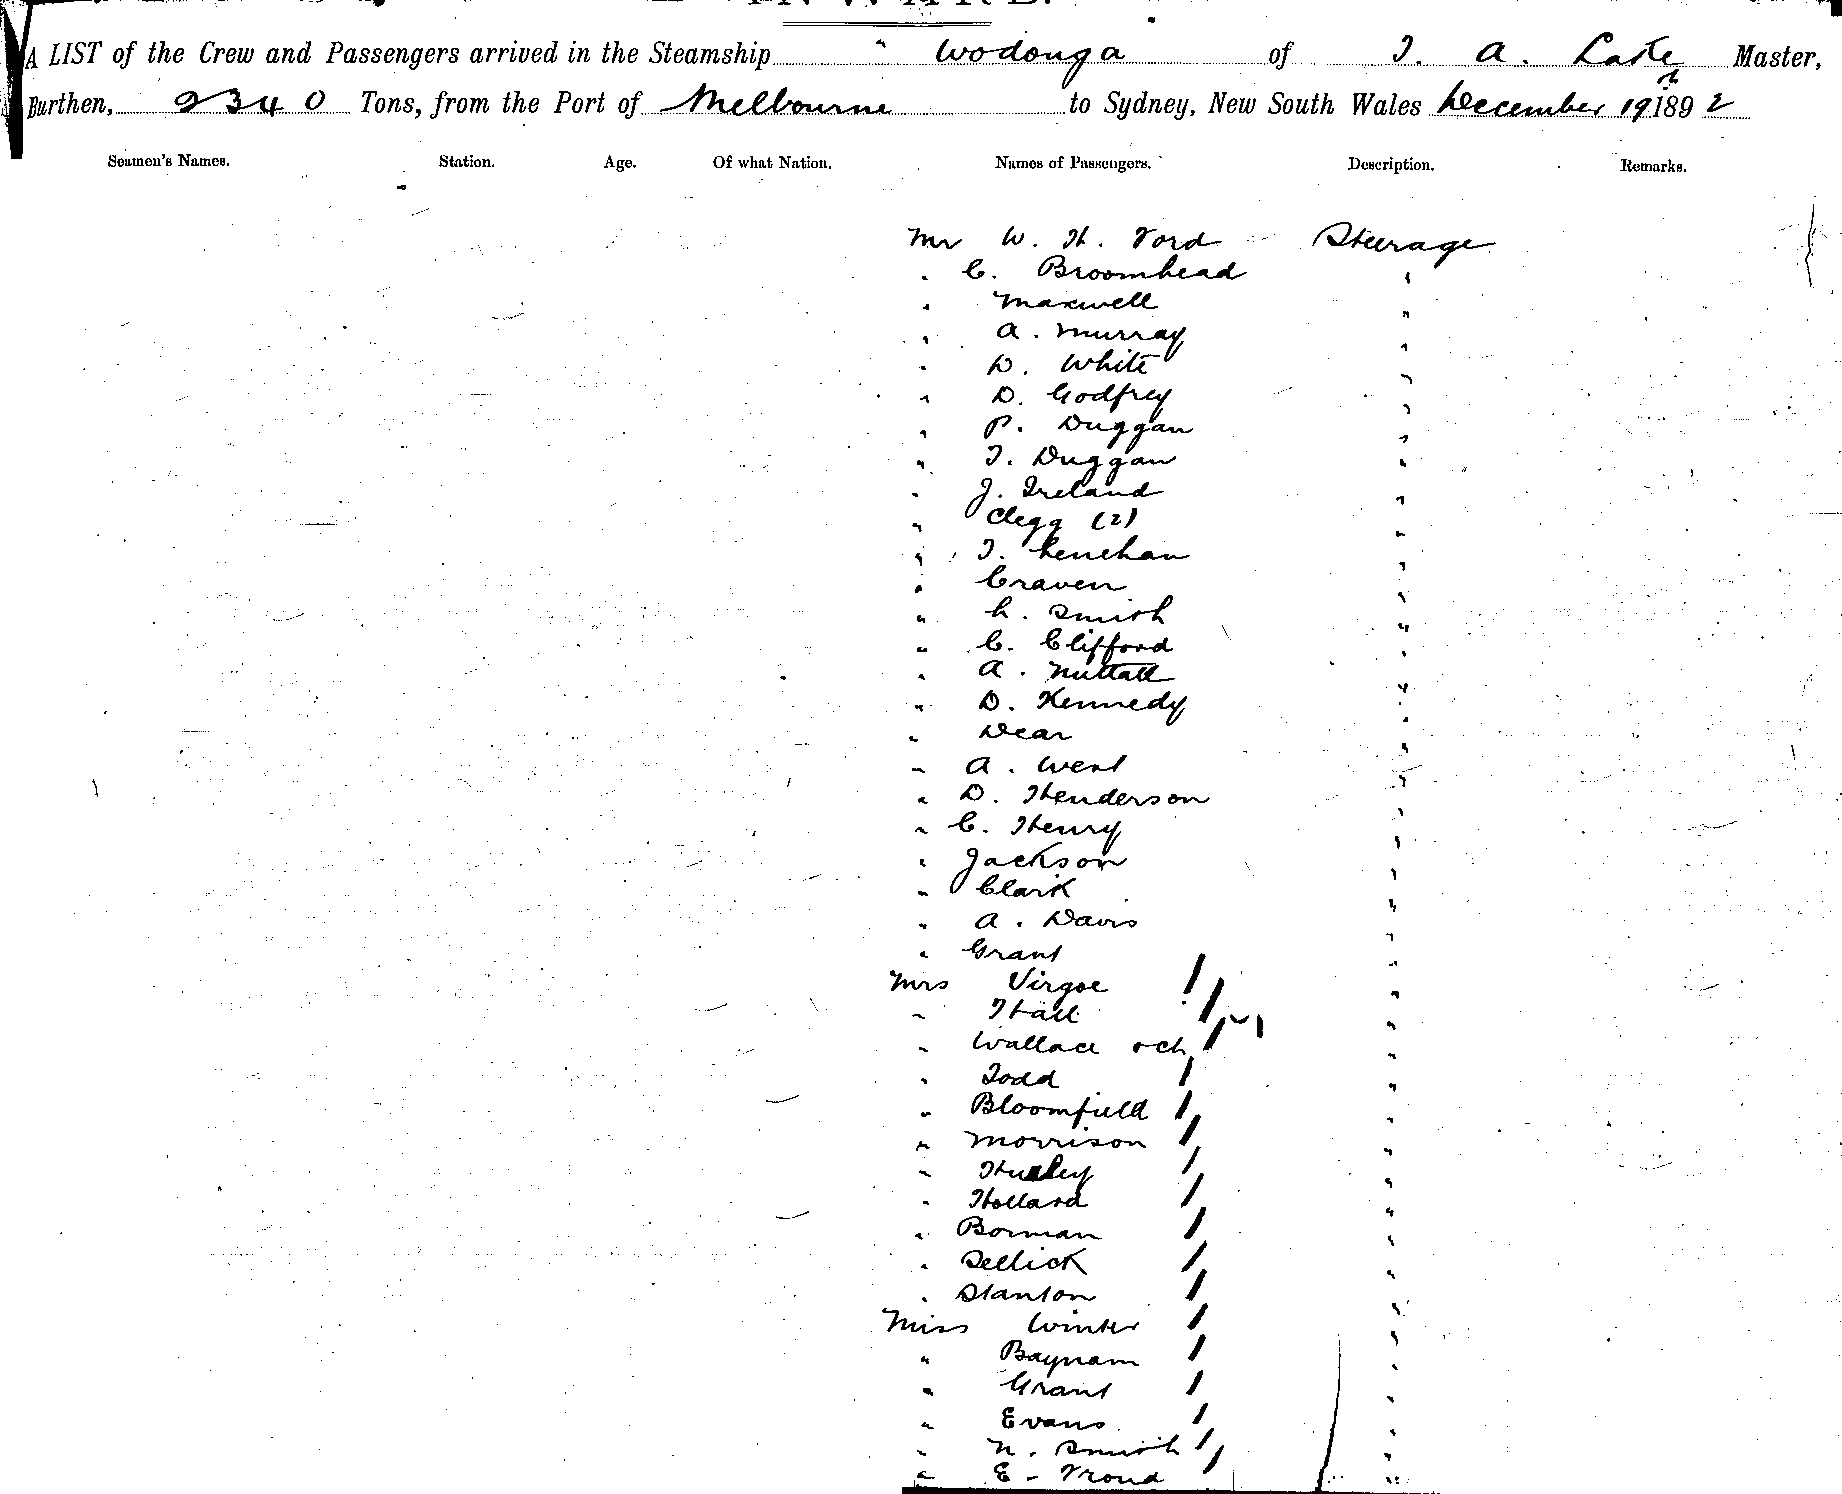 INWARD.
A LIST of the Crew and Passengers arrived in the Steamship " Wodonga of T. A. Lake Master,
Burthen, 2340 Tons, from the Port of Melbourne to Sydney, New South Wales December 19th 1892
Seamen's Names. Station. Age. Of what Nation. Names of Passengers. Description. Remarks.
Mr W. H. Ford Steerage
" C. Broomhead "
" Maxwell "
" A. Murray "
" D. White "
" D. Godfrey "
" P. Duggan "
" T. Duggan "
" J. Ireland "
" Clegg (2) "
" T. Lenehan "
" Craven "
" h. Smith "
" C. Clifford "
" A. Nuttall "
" D. Kennedy "
" Dear "
" A. Went "
" D. Henderson "
" C. Henry "
" Jackson "
" Clark "
" A. Davis "
" Grant "
Mrs Virgoe "
" Hall "
" Wallace & ch "
" Todd "
" Bloomfield "
" Morrison "
" "
" Hollard "
" Borman "
" Sellick "
" Stanton "
Miss Winter "
" Baynam "
" Grant "
" Evans "
" N. Smith "
" E. "